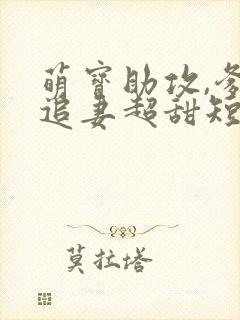 萌宝助攻,爹
追妻超甜短
莫拉塔